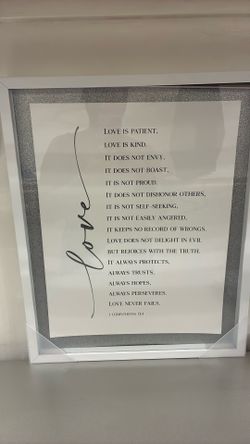 love
LOVE IS PATIENT,
LOVE IS KIND.
IT DOES NOT ENVY,
IT DOES NOT BOAST,
IT IS NOT PROUD.
IT DOES NOT DISHONOR OTHERS,
IT IS NOT SELF-SEEKING,
IT IS NOT EASILY ANGERED,
IT KEEPS NO RECORD OF WRONGS.
LOVE DOES NOT DELIGHT IN EVIL
BUT REJOICES WITH THE TRUTH.
IT ALWAYS PROTECTS,
ALWAYS TRUSTS,
ALWAYS HOPES,
ALWAYS PERSEVERES.
LOVE NEVER FAILS.
1 CORINTHIANS